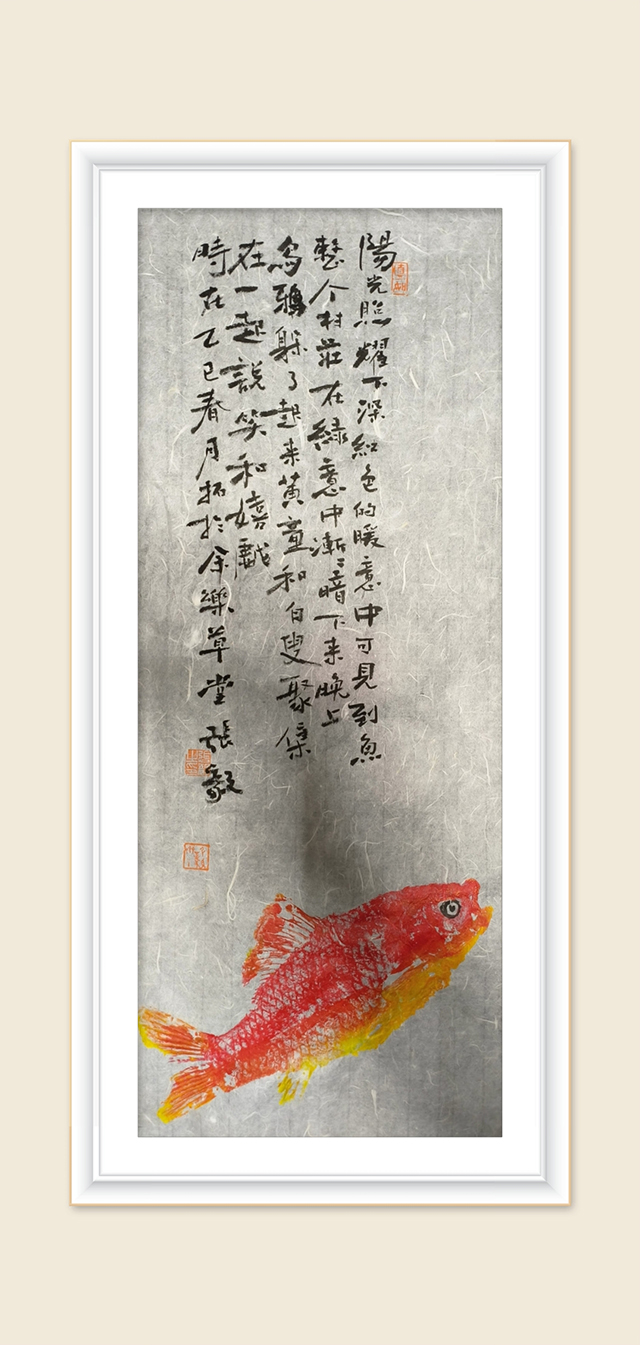 陽光照耀下深紅色的暖意中可見到魚
整个村莊在綠意中漸〻暗下来晚上
烏鴉躲了起来黄童和白叟聚集
在一起說笑和嬉戲
時在乙巳春月拓於余樂草堂張毅